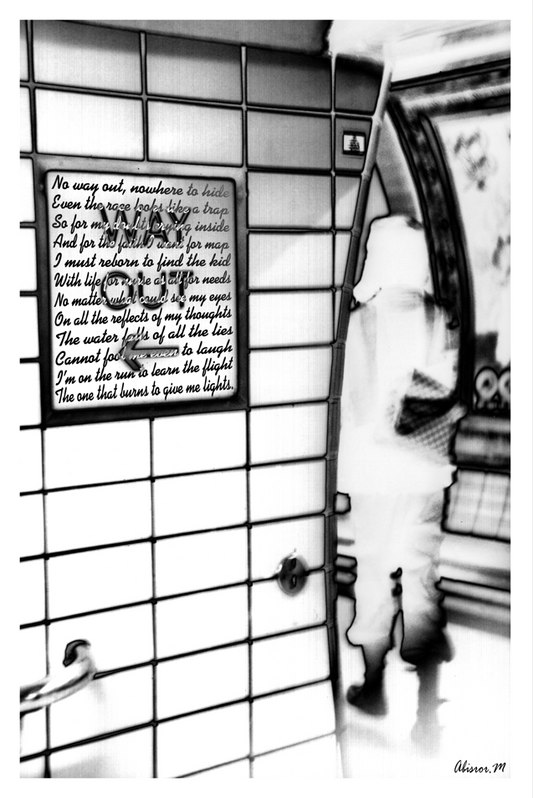 No way out, nowhere to hide
Even the race looks like a trap
So for my doubts crying inside
And for the faith I want for map
I must reborn to find the kid
With life for as all for needs
No matter what could see my eyes
On all the reflects of my thoughts
The water falls of all the lies
Cannot fool me even to laugh
I'm on the run to learn the flight
The one that burns to give me lights.
WAY
OUT
Abisror.M